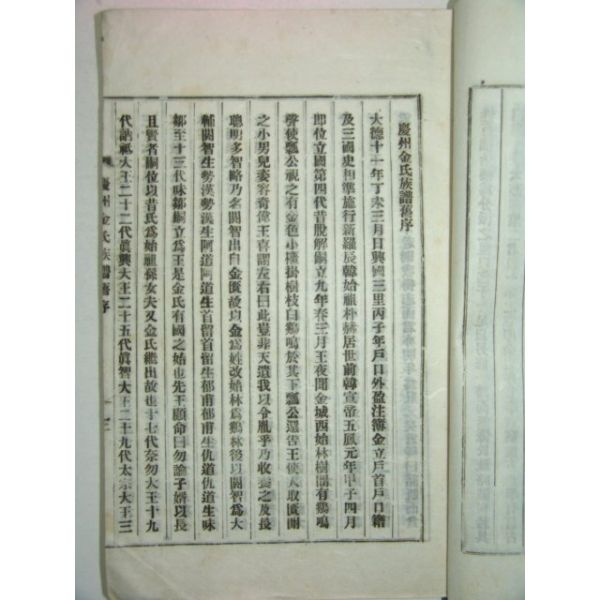 慶州金氏族譜舊序
大德十一年丁未三月日興國三里丙子年戶口外盈注海金立戶首戶口籍
及三國史相準施行新羅辰韓始祖朴赫居世前韓宣帝五鳳元年甲子四月
即位立國第四代昔脫解嗣立九年春三月王夜聞金城西始林樹間有鷄鳴
聲使瓢公視之有金色小櫝掛樹枝白鷄鳴於其下瓢公還告王使人取匱開
之小男兒姿容奇偉王喜謂左右曰此豈非天遺我以令胤乎乃收養之及長
聰明多智略乃名閼智出自金匱故以金爲姓改始林爲鷄林後以閼智爲大
輔閼智生勢漢勢漢生阿道阿道生首留首留生郁甫郁甫生仇道仇道生味
鄒至十三代味鄒嗣立爲王是金氏有國之始也先王顧命曰勿論子婿以長
且賢者嗣位以昔氏爲始祖保女夫又金氏繼出故也十七代奈勿大王十九
代訥祗大王二十二代眞興大王二十五代眞智大王二十九代太宗大王三
慶州金氏族譜舊序